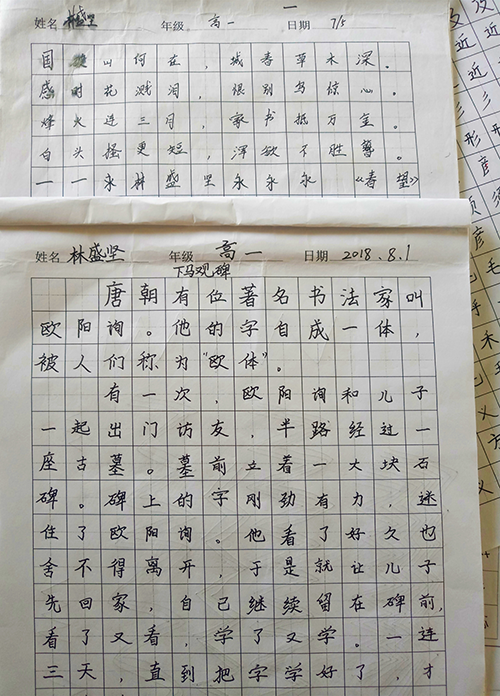 姓名 林盛坚 年级 高一 日期 7/5
国 山河在，城春草木深。
感时花溅泪，恨别鸟惊心。
烽火连三月，家书抵万金。
白头搔更短，浑欲不胜簪。
一一永林盛坚永永永《春望》
姓名 林盛坚 年级 高一 日期 2018.8.1
下马观碑
唐朝有位著名书法家叫
欧阳询。他的字自成一体，
被人们称为“欧体”。
有一次，欧阳询和儿子
一起出门访友，半路经过一
座古墓。墓前立着一大块石
碑。碑上的字刚劲有力，迷
住了欧阳询。他看了好久也
舍不得离开，于是就让儿子
先回家，自己继续留在碑前，
看了又看，学了又学。一连
三天，直到把字学好了，才